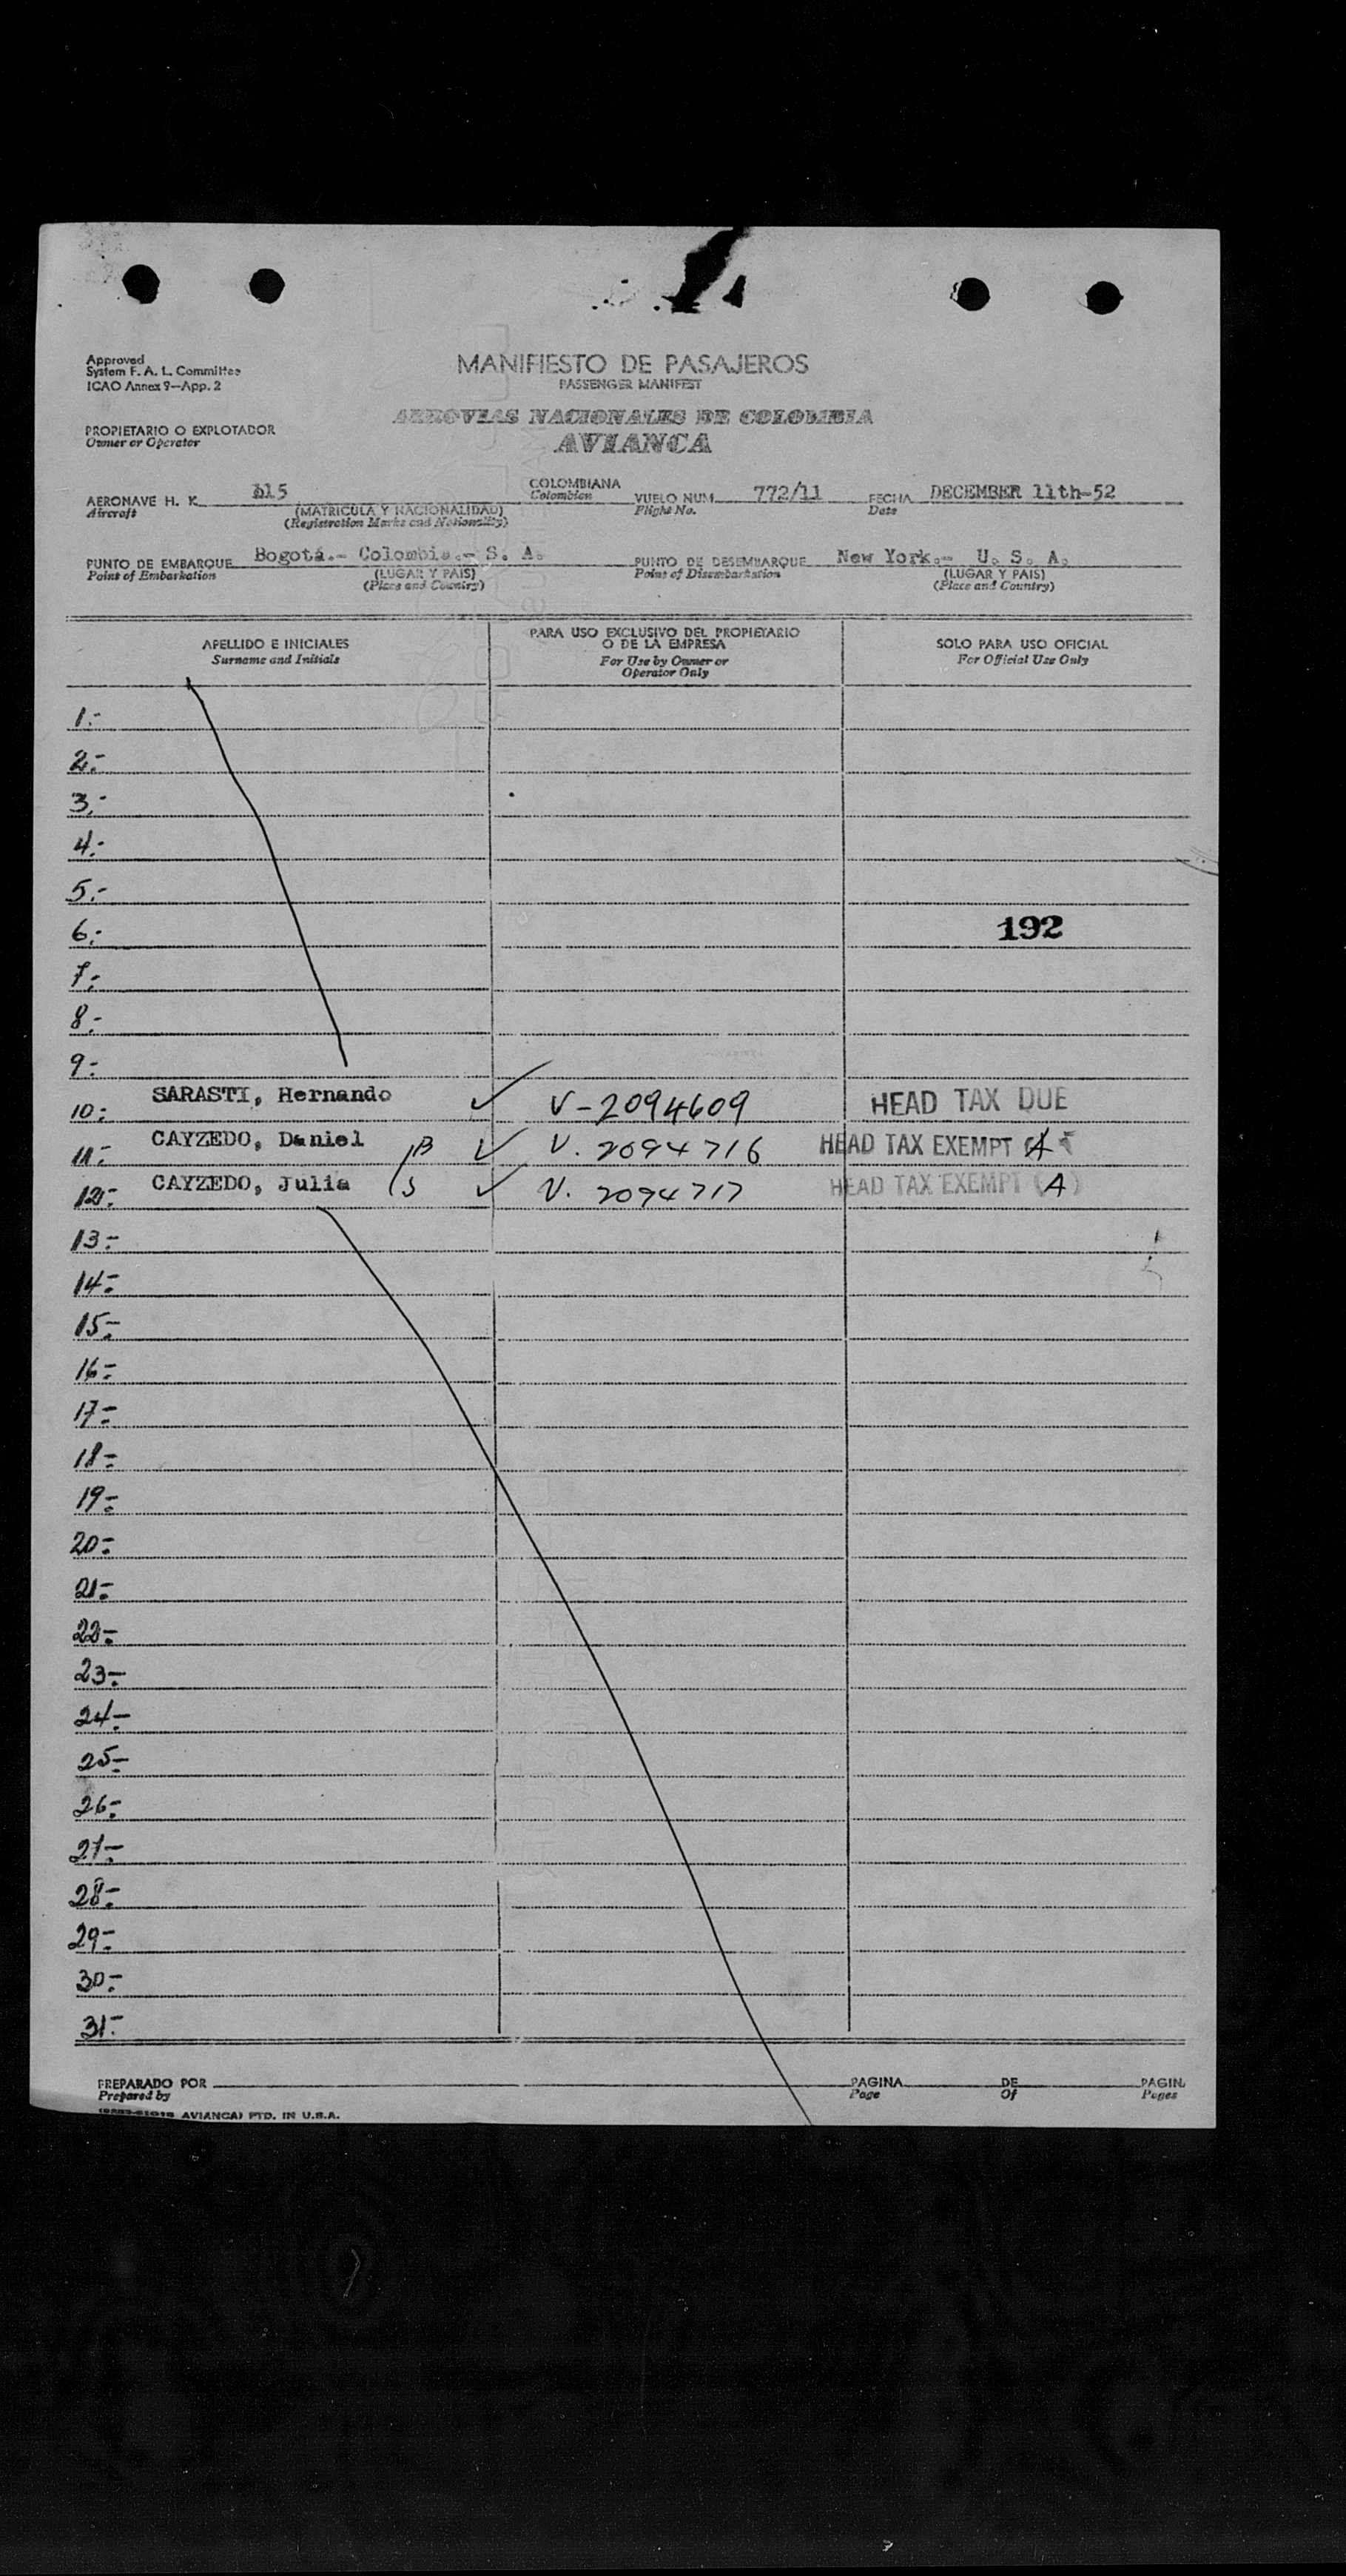 Approved
System F. A. L. Committee
ICAO Annex 9—App. 2
MANIFIESTO DE PASAJEROS
PASSENGER MANIFEST
AEROVIAS NACIONALES DE COLOMBIA
AVIANCA
PROPIETARIO O EXPLOTADOR
Owner or Operator
AERONAVE H. K. 515 COLOMBIANA VUELO NUM. 772/11 FECHA DECEMBER 11th-52
Aircraft (MATRICULA Y NACIONALIDAD) Colombian Flight No. Date
(Registration Marks and Nationality)
PUNTO DE EMBARQUE Bogotá.- Colombia.- S. A. PUNTO DE DESEMBARQUE New York.- U. S. A.
Point of Embarkation (LUGAR Y PAIS) Point of Disembarkation (LUGAR Y PAIS)
(Place and Country) (Place and Country)
APELLIDO E INICIALES PARA USO EXCLUSIVO DEL PROPIETARIO O DE LA EMPRESA SOLO PARA USO OFICIAL
Surname and Initials For Use by Owner or Operator Only For Official Use Only
1.-
2.-
3.-
4.-
5.-
6.- 192
7.-
8.-
9.-
10.- SARASTI, Hernando ✓ V-2094609 HEAD TAX DUE
11.- CAYZEDO, Daniel B ✓ V. 2094716 HEAD TAX EXEMPT (A)
12.- CAYZEDO, Julia S ✓ V. 2094717 HEAD TAX EXEMPT (A)
13.-
14.-
15.-
16.-
17.-
18.-
19.-
20.-
21.-
22.-
23.-
24.-
25.-
26.-
27.-
28.-
29.-
30.-
31.-
PREPARADO POR PAGINA DE PAGIN
Prepared by Page Of Pages
AVIANCA) PTD. IN U.S.A.